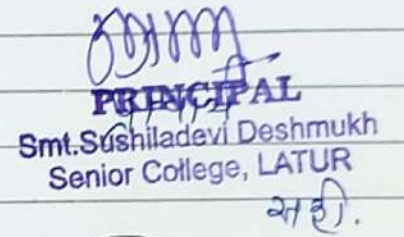 PRINCIPAL
Smt.Sushiladevi Deshmukh
Senior College, LATUR
सही.